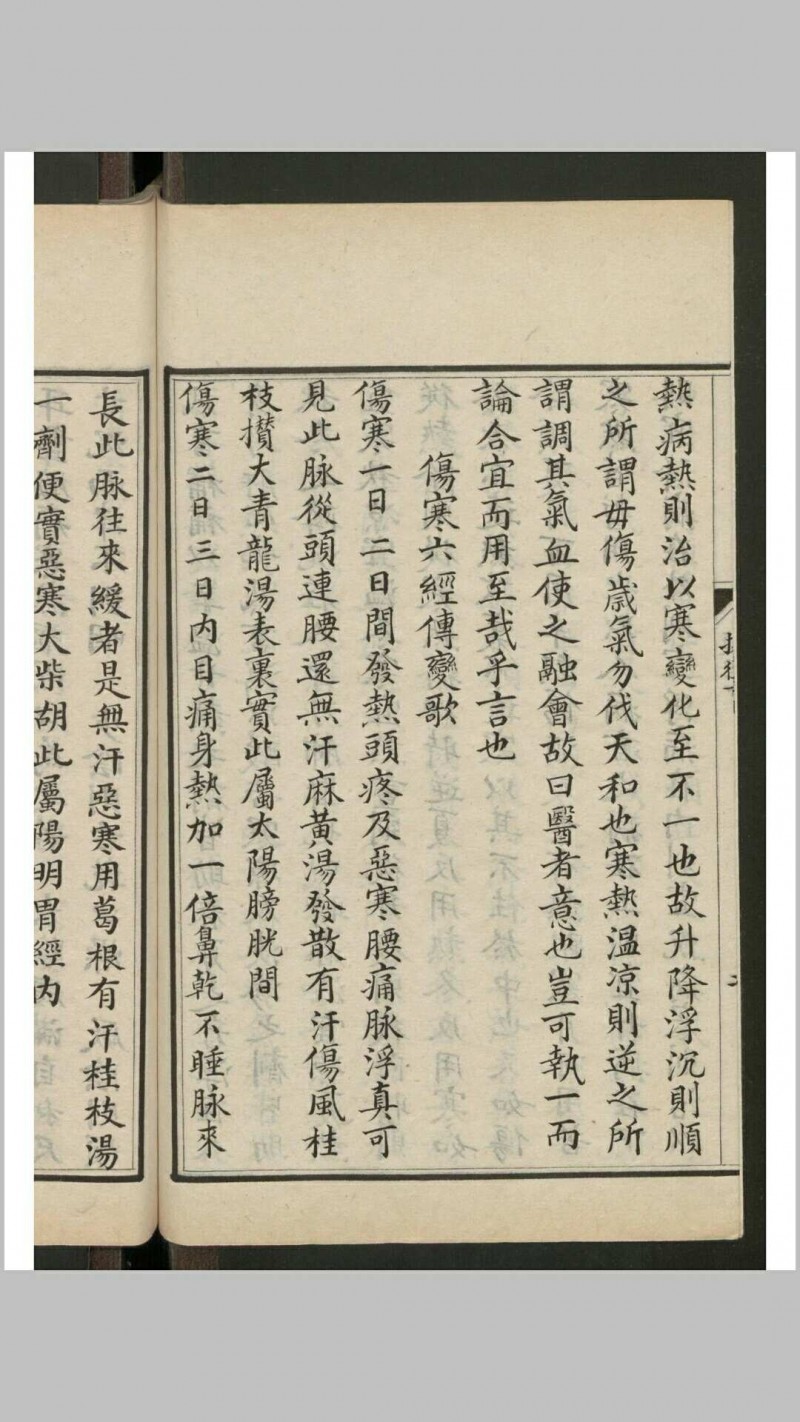 熱病熱則治以寒變化至不一也故升降浮沉則順
之所謂毋傷歲氣勿伐天和也寒熱温凉則逆之所
謂調其氣血使之融會故曰醫者意也豈可執一而
論合宜而用至哉乎言也
傷寒六經傳變歌
傷寒一日二日間發熱頭疼及惡寒腰痛脉浮真可
見此脉從頭連腰還無汗麻黃湯發散有汗傷風桂
枝攢大青龍湯表裏實此屬太陽膀胱間
傷寒二日三日内目痛身熱加一倍鼻乾不睡脉來
長此脉往來緩者是無汗惡寒用葛根有汗桂枝湯
一劑便實惡寒大柴胡此屬陽明胃經内